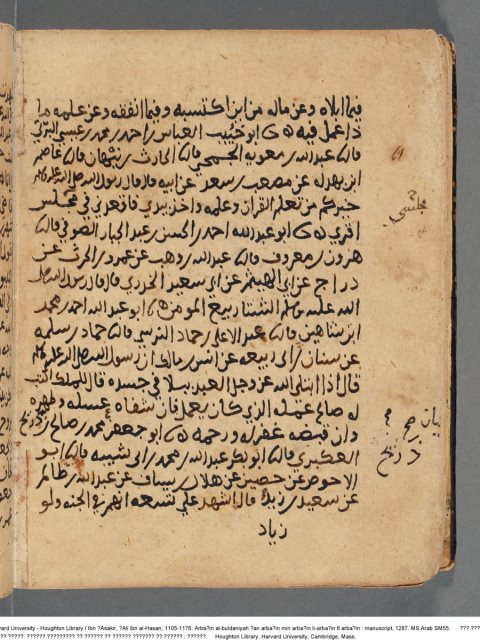 فيما ابلاه وعن ماله من اين اكتسبه وفيما انفقه وعن علمه ما
ذا عمل فيه ابو خبيب العباس بن احمد بن محمد بن عيسى البرتي
قال عبد الله بن معوية الجمحي قال الحارث بن نبهان قال عاصم
ابن بهدله عن مصعب بن سعد عن ابيه قال قال رسول الله صلى الله عليه وسلم
خيركم من تعلم القران وعلمه واخذ بيدي فاقعدني في مجلسي
اقري ابو عبد الله احمد بن الحسن بن عبد الجبار الصوفي قال
هرون بن معروف قال عبد الله بن وهب عن عمرو بن الحرث عن
دراج عن ابي الهيثم عن ابي سعيد الخدري قال قال رسول الله صلى
الله عليه وسلم الشتا ربيع المومن ابو عبد الله احمد بن محمد
ابن شاهين قال عبد الاعلى بن حماد النرسي قال حماد بن سلمه
عن سنان بن ابي ربيعه عن انس بن مالك ان رسول الله صلى الله عليه وسلم
قال اذا ابتلى الله عز وجل العبد ببلا في جسده قال للملك اكتب
له صالح عمله الذي كان يعمل فان شفاه غسله وطهره
وان قبضه غفر له ورحمه ابو جعفر محمد بن صالح بن ذريح
العكبري قال ابو بكر عبد الله بن محمد بن ابي شيبه قال ابو
الاحوص عن حصين عن هلال بن يساف عن عبد الله بن ظالم
عن سعيد بن زيد قال اشهد على تسعه انهم في الجنه ولو
زياد
مجلسي
ذريح
vard University - Houghton Library / Ibn ?Asakir, ?Ali ibn al-Hasan, 1105-1176. Arba?in al-buldaniyah ?an arba?in min arba?in li-arba?in fi arba?in : manuscript, 1267. MS Arab SM55. ??? ???
?? ?????, ?????? ????????? ?? ?????? ?? ?????? ??????? ?? ?????? : ??????, Houghton Library, Harvard University, Cambridge, Mass.